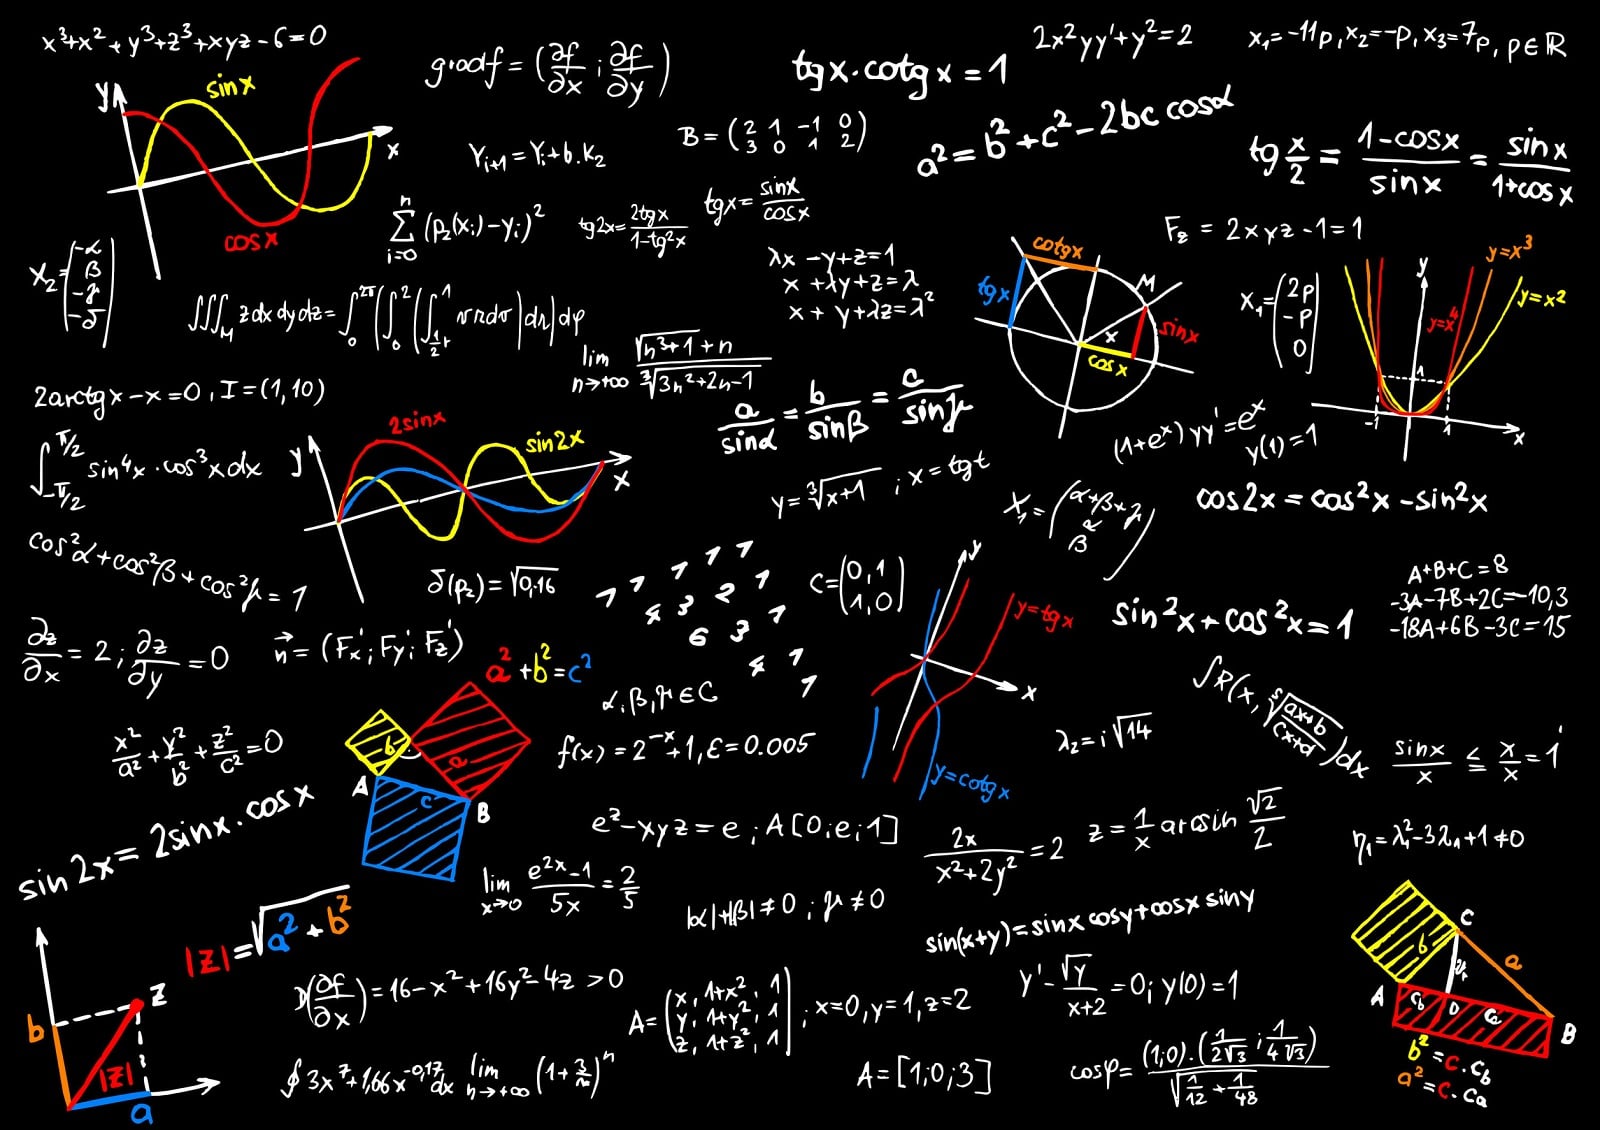 x³+x²+y³+z³+xyz-6=0
gradf = (∂f/∂x ; ∂f/∂y)
tgx·cotgx = 1
2x²yy'+y²=2
x₁=-11p, x₂=-p, x₃=7p, p∈ℝ
y
sin x
x
cos x
Y_{i+1} = Y_i + b·K₂
B = (2 1 -1 0
3 0 1 2)
a² = b²+c²-2bc cosα
tg x/2 = (1-cosx)/sinx = sinx/(1+cosx)
∑_{i=0}^{n} (p₂(x_i)-y_i)²
tg2x = 2tgx/(1-tg²x)
tgx = sinx/cosx
X₂ = (-α
β
-γ
-δ)
λx -y+z=1
x +λy+z=λ
x + y+λz=λ²
cotgx
tgx
M
x
sinx
cosx
F_z = 2xyz-1=1
x₁ = (2p
-p
0)
y
y=x³
y=x²
y=x⁴
1
-1
1
x
∭_M z dx dy dz =
lim_{n→+∞} (√(n³+1)+n)/∛(3n²+2n-1)
2arctgx-x=0, I=(1,10)
∫_{-π/2}^{π/2} sin⁴x·cos³x dx
y
2sinx
sin2x
x
a/sinα = b/sinβ = c/sinγ
y=∛(x+1) ; x=tgt
(1+e^x) yy'=e^x
y(1)=1
X₁ = (α+β+γ
α
β)
cos2x = cos²x-sin²x
cos²α+cos²β+cos²γ=1
δ(p₂)=√0,16
1 1 1 1 1
4 3 2 1
6 3 1
4 1
1
C=(0,1
1,0)
y
y=tgx
x
y=cotgx
sin²x+cos²x=1
A+B+C=8
-3A-7B+2C=-10,3
-18A+6B-3C=15
∂z/∂x = 2; ∂z/∂y = 0
n⃗ = (F'x; F'y; F'z)
a²+b²=c²
b
a
A
c
B
α,β,γ∈C
∫R(x, ⁵√((ax+b)/(cx+d)))dx
x²/a²+y²/b²+z²/c²=0
f(x)=2^{-x}+1, ε=0.005
λ₂=i√14
sinx/x ≤ x/x = 1
sin2x = 2sinx·cosx
e^z-xyz=e ; A[0;e;1]
2x/(x²+2y²)=2
z = 1/x arcsin √2/2
η₁=λ₁²-3λ₁+1≠0
lim_{x→0} (e^{2x}-1)/5x = 2/5
|α|+|β|≠0 ; γ≠0
sin(x+y)=sinx cosy+cosx siny
|z|=√(a²+b²)
z
b
|z|
a
D(∂f/∂x)=16-x²+16y²-4z>0
A = (x, 1+x², 1
y, 1+y², 1
z, 1+z², 1) ; x=0, y=1, z=2
y' - √y/(x+2) = 0; y(0)=1
C
b
a
A
c_b
D
c_a
B
b²=c·c_b
a²=c·c_a
∮3x⁷+1,66x^{-0,17}dx
lim_{n→+∞} (1+3/n)ⁿ
A=[1;0;3]
cosφ = (1;0)·(1/(2√3) ; 1/(4√3)) / √(1/12+1/48)